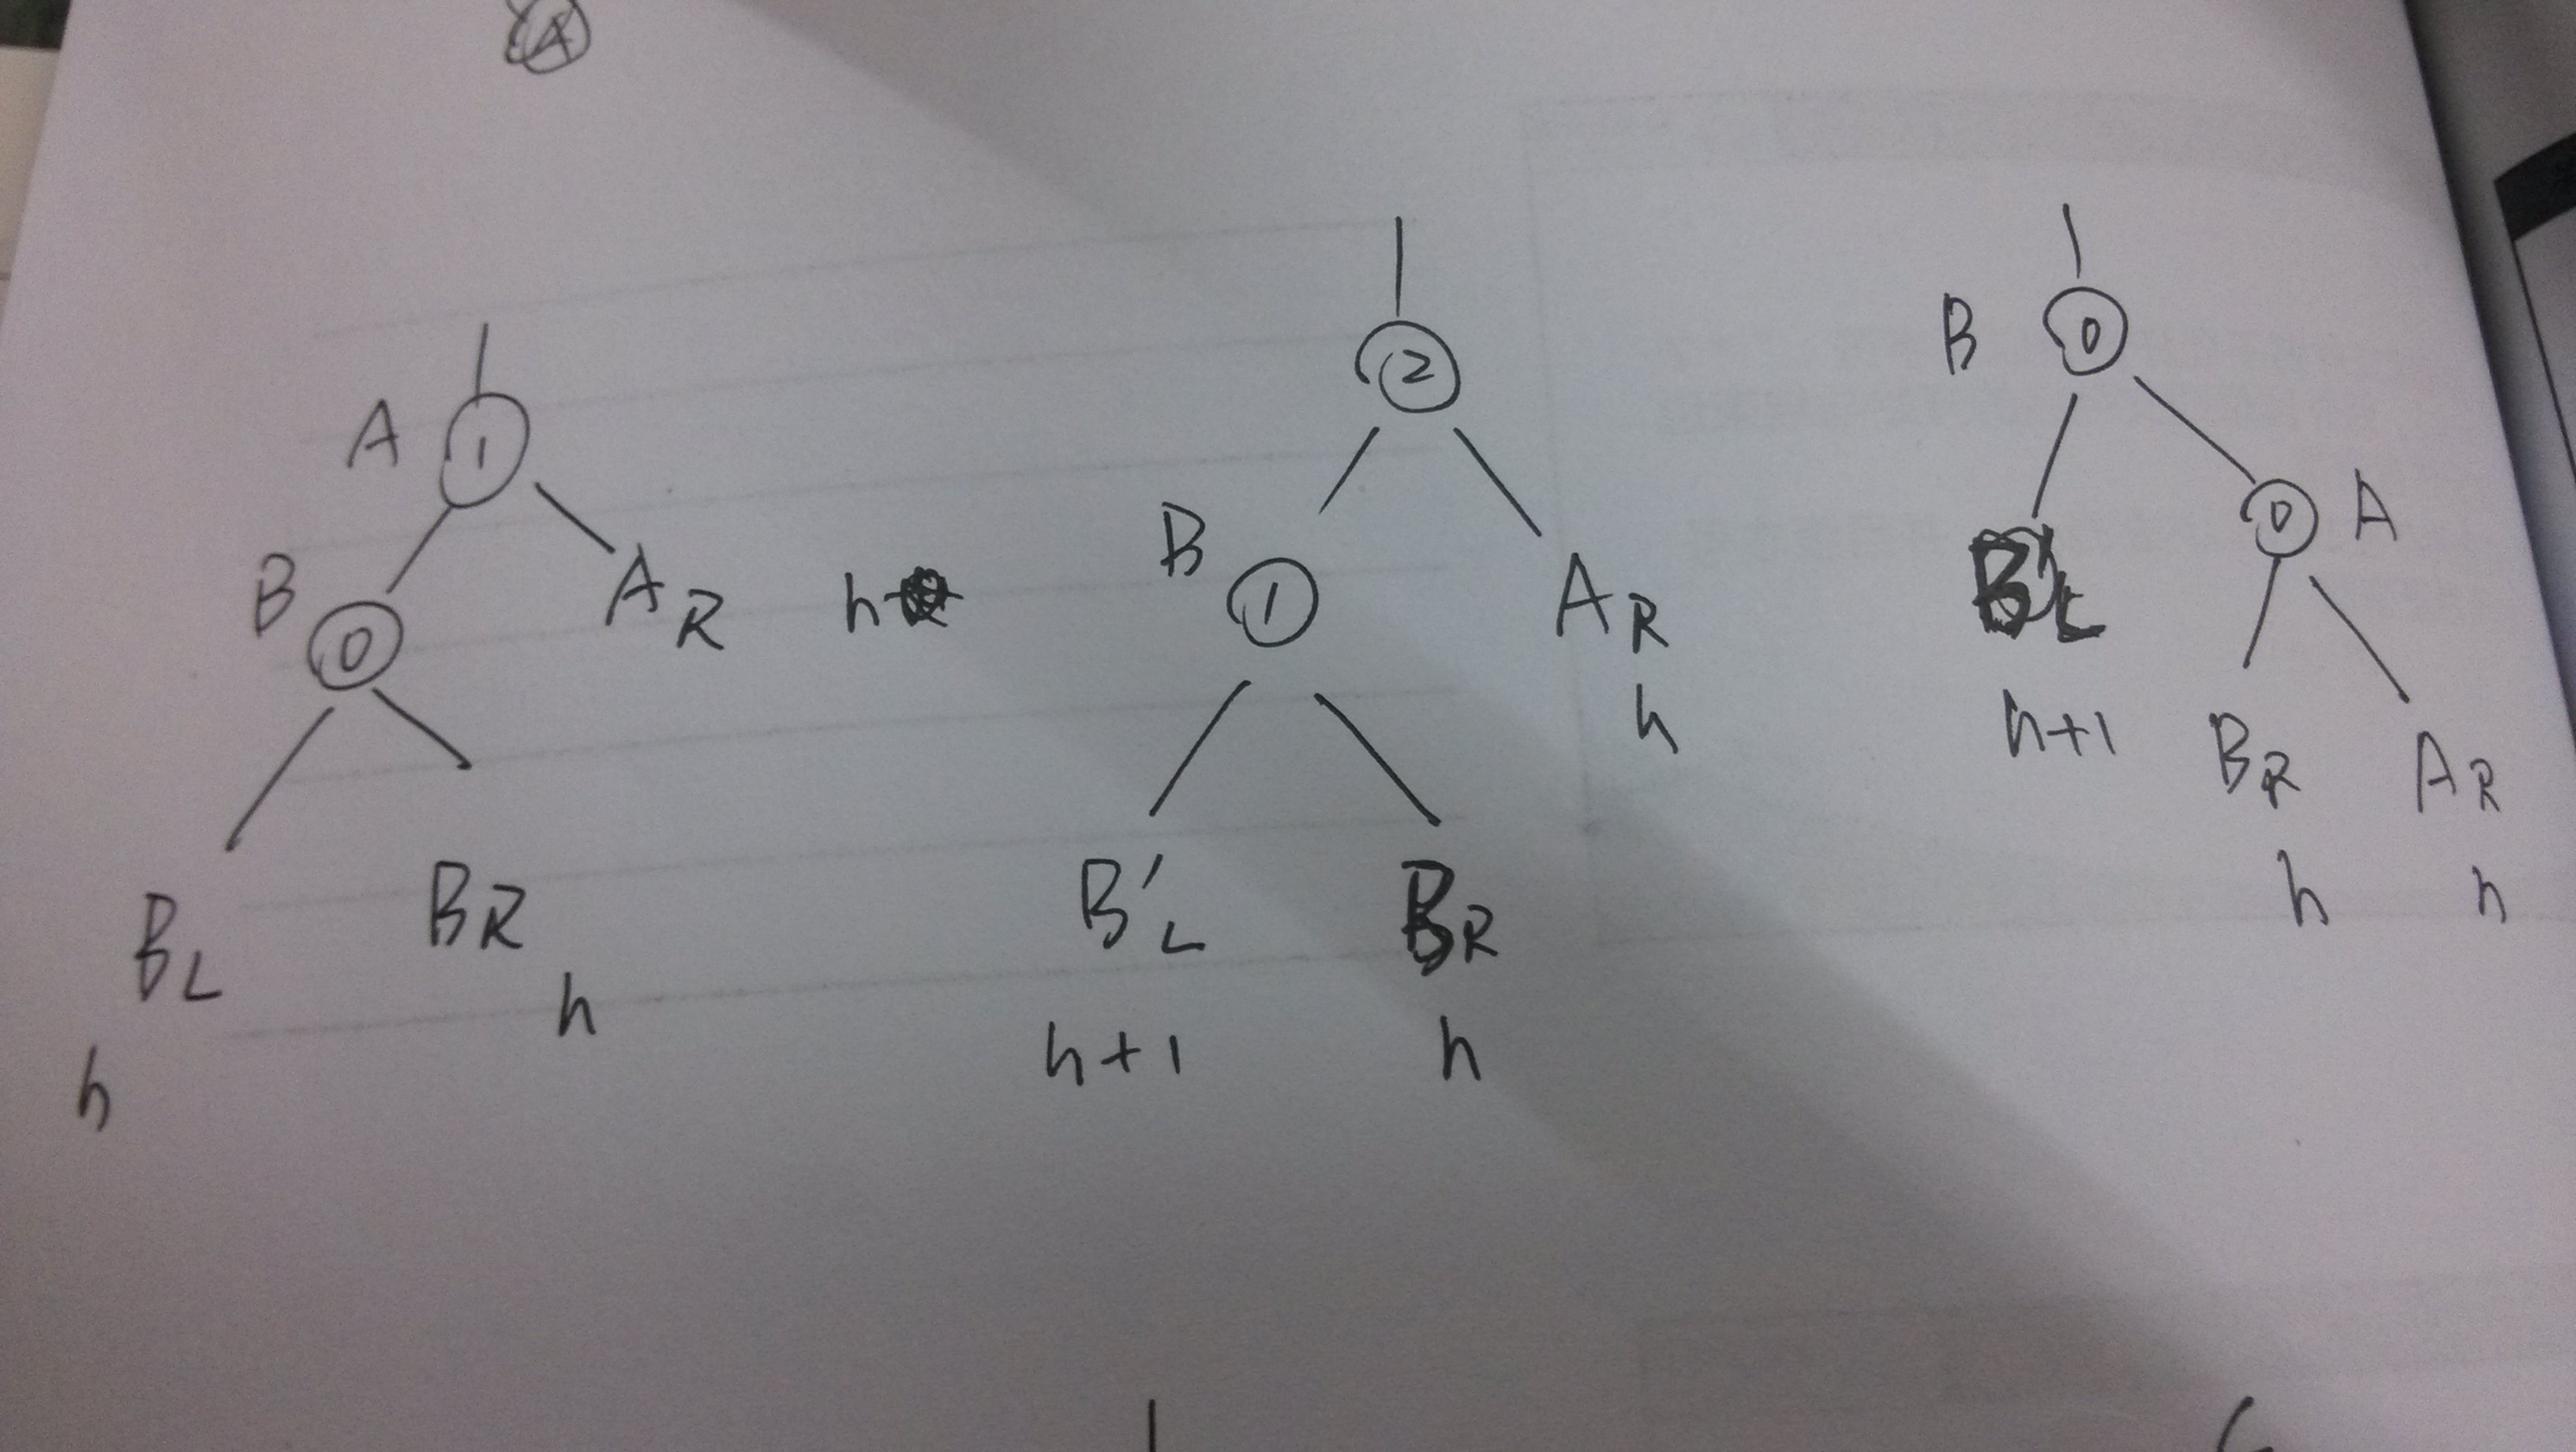 A
A 1
B 0
A_R h
B_L
B_R
h
h
2
B 1
A_R
h
B'_L
B_R
h+1
h
B 0
0 A
B'_L
h+1
B_R
A_R
h
h